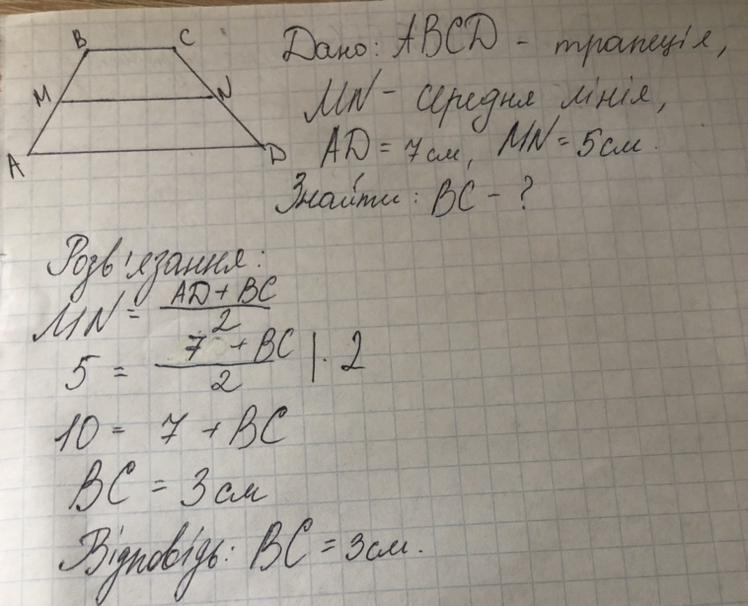 B C
Дано: ABCD - трапеція,
M N
MN - середня лінія,
A D
AD = 7 см, MN = 5 см.
Знайти: BC - ?
Розв'язання:
MN = AD + BC / 2
5 = 7 + BC / 2 | · 2
10 = 7 + BC
BC = 3 см
Відповідь: BC = 3 см.